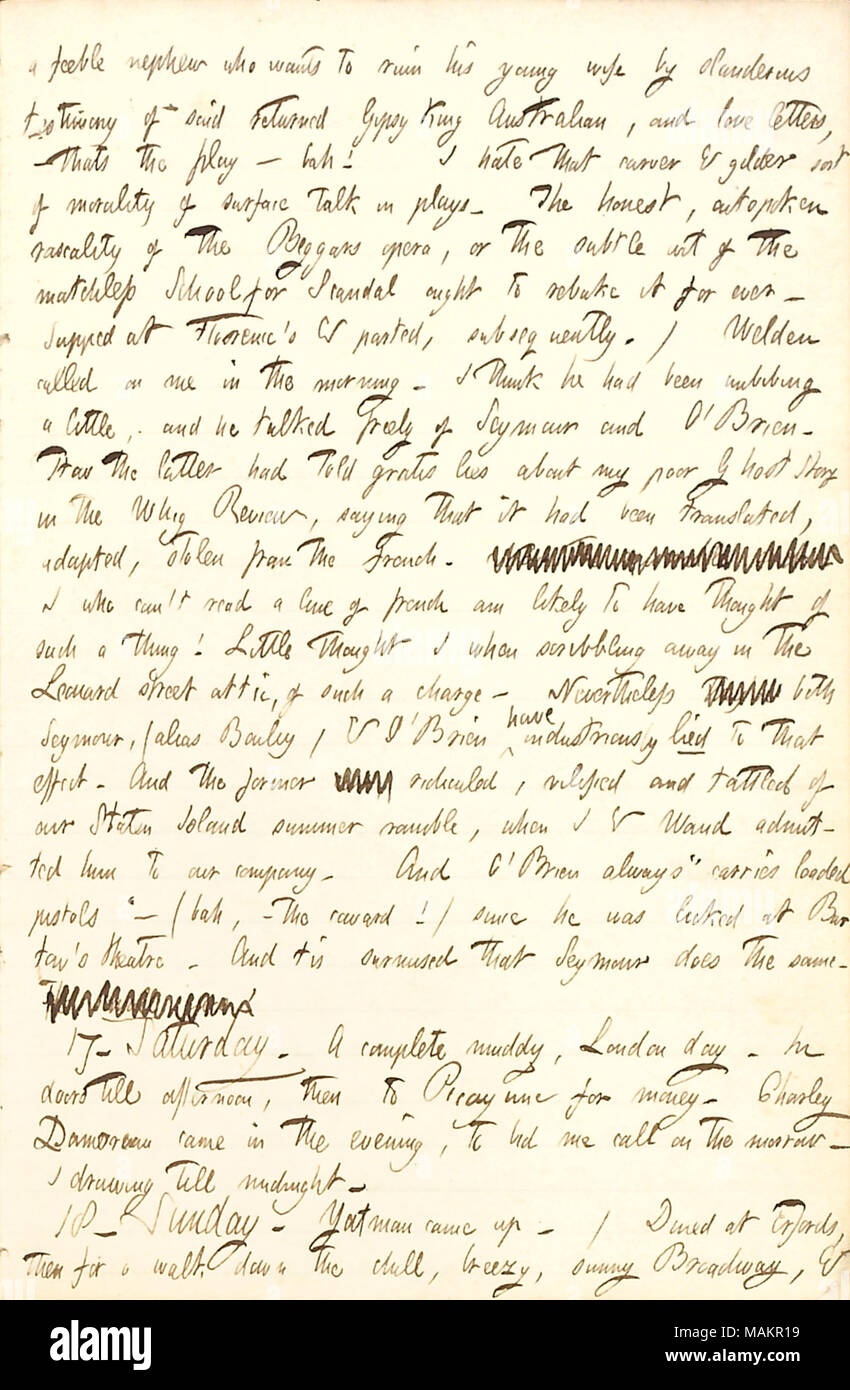 a feeble nephew who wants to ruin his young wife by slanderous
testimony of said returned Gypsy King Australian, and love letters,
—thats the play — bah! I hate that carver & gilder sort
of morality of surface talk in plays— The honest, outspoken
rascality of the Beggars opera, or the subtle wit of the
matchless School for Scandal ought to rebuke it for ever—
Supped at Florence's & parted, subsequently. / Welden
called on me in the morning— I think he had been imbibing
a little, and he talked freely of Seymour and O'Brien—
How the latter had told gratis lies about my poor Ghost Story
in the Whig Review, saying that it had been translated,
adapted, stolen from the French—
I who can't read a line of french am likely to have thought of
such a thing! Little thought I when scribbling away in the
Leonard street attic, of such a charge— Nevertheless both
Seymour, (alias Bailey) & O'Brien have industriously lied to that
effect— And the former ridiculed, vilified and tattled of
our Staten Island summer ramble, when I & Waud admit-
ted him to our company— And O'Brien always "carries loaded
pistols"— (bah, —the coward!) since he was licked at Bur
ton's theatre— And tis surmised that Seymour does the same—
17— Saturday— A complete muddy, London day— In
doors till afternoon, then to Picayune for money— Charley
Damoreau came in the evening, to bid me call on the morrow—
I drawing till midnight—
18— Sunday— Yatman came up— / Dined at Erfords,
then for a walk down the chill, breezy, sunny Broadway, &
alamy
Image ID: MAKR19
www.alamy.com